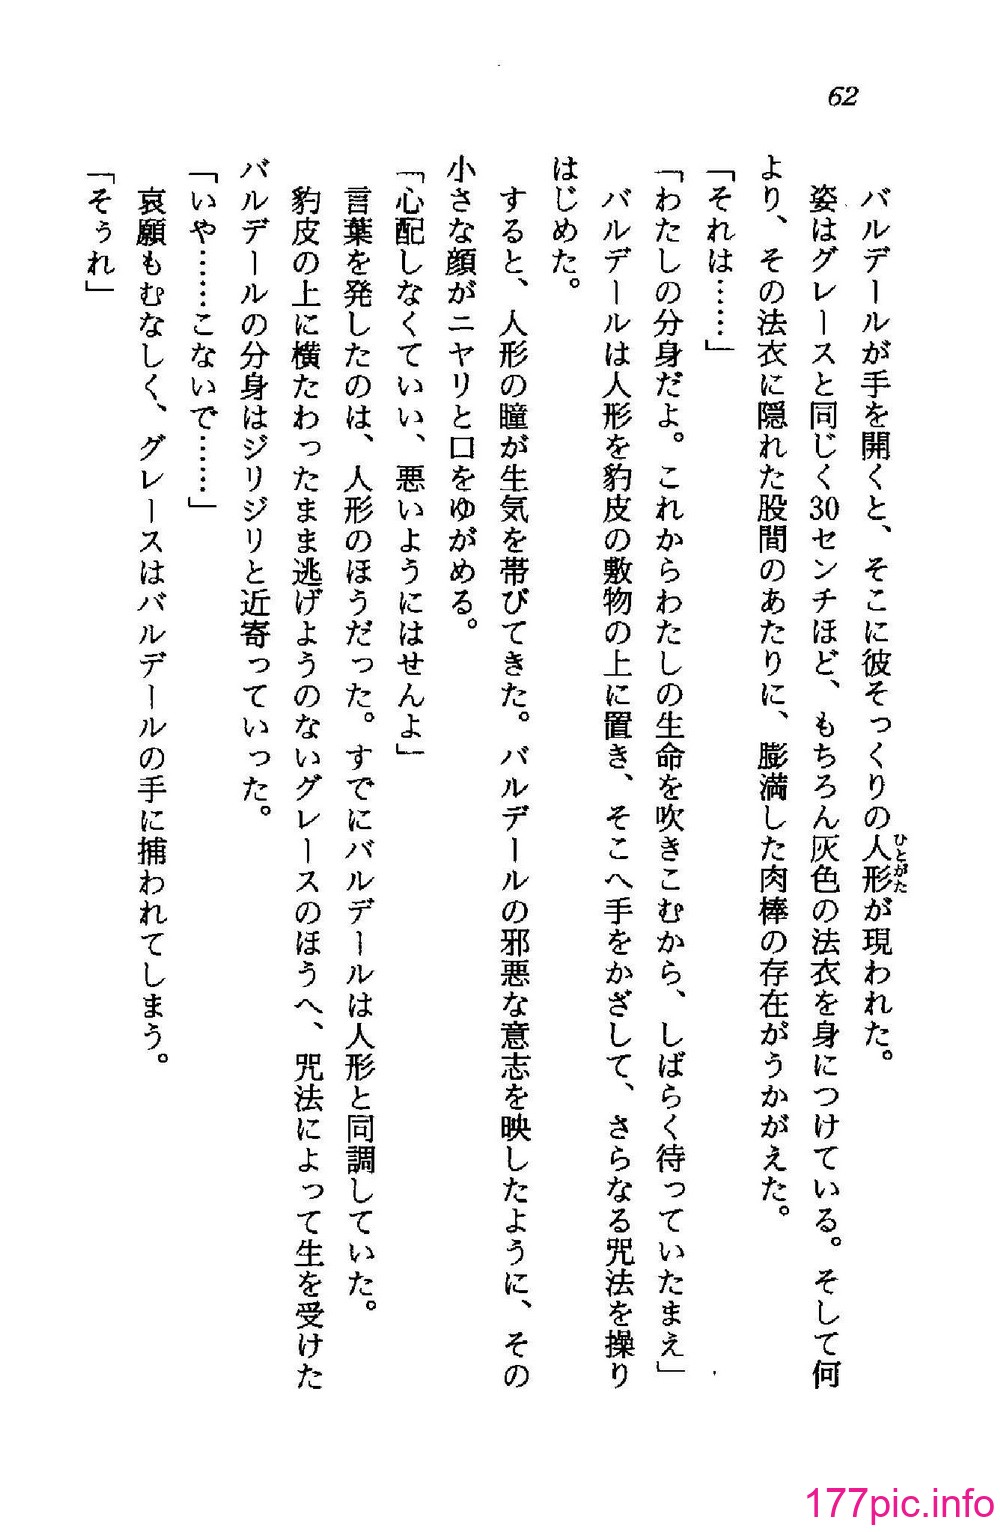 62
バルデールが手を開くと、そこに彼そっくりの人形が現われた。
ひとがた
姿はグレースと同じく30センチほど、もちろん灰色の法衣を身につけている。そして何
より、その法衣に隠れた股間のあたりに、膨満した肉棒の存在がうかがえた。
「それは……」
「わたしの分身だよ。これからわたしの生命を吹きこむから、しばらく待っていたまえ」
バルデールは人形を豹皮の敷物の上に置き、そこへ手をかざして、さらなる咒法を操り
はじめた。
すると、人形の瞳が生気を帯びてきた。バルデールの邪悪な意志を映したように、その
小さな顔がニヤリと口をゆがめる。
「心配しなくていい、悪いようにはせんよ」
言葉を発したのは、人形のほうだった。すでにバルデールは人形と同調していた。
豹皮の上に横たわったまま逃げようのないグレースのほうへ、咒法によって生を受けた
バルデールの分身はジリジリと近寄っていった。
「いや……こないで……」
哀願もむなしく、グレースはバルデールの手に捕われてしまう。
「そぅれ」
177pic.info